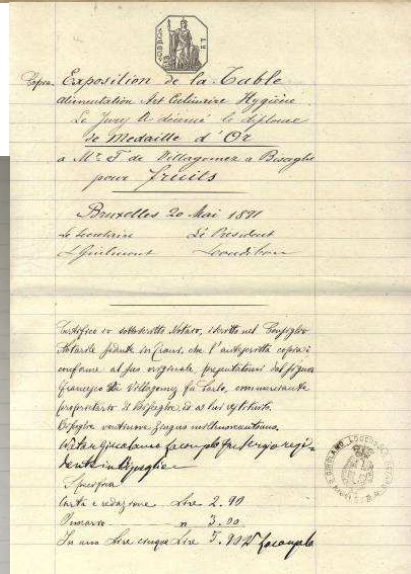 Copia Exposition de la Table
alimentation Art Culinaire Hygiène
Le Jury A décerné le diplome
de Medaille d'Or
a Mr F. de Villagomez a Bisceglie
pour fruits
Bruxelles 20 Mai 1891
Le Secretaire Le President
Certifico io sottoscritto Notaro, iscritto nel Consiglio
Notarile sedente in Trani, che l'antescritta copia è
conforme al suo originale, presentatomi dal signor
Francesco de Villagomez fu Carlo, commerciante
proprietario di Bisceglie, ed a lui restituito.
Bisceglie ventinove Giugno millenovecentouno.
Notar
dente in Bisceglie
Specifica
Carta e redazione Lire 2.90
Onorario " 3.00
In uno Lire cinque Lire 5.90